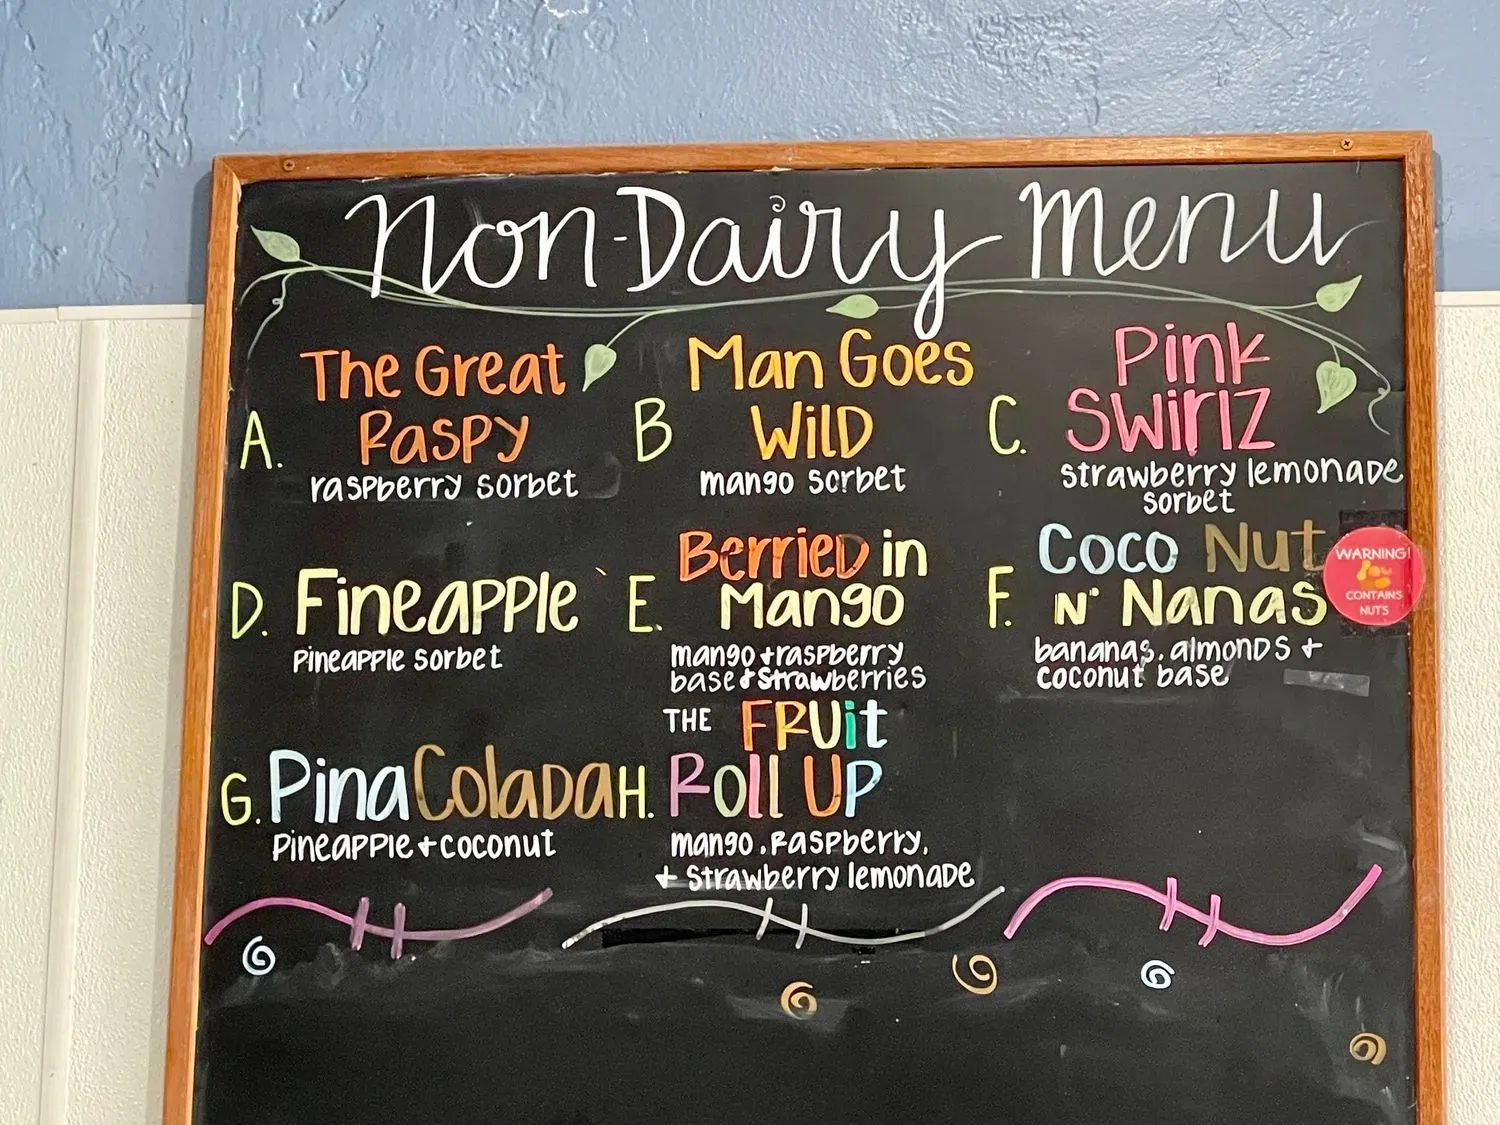 Non-Dairy Menu
A. The Great
Raspy
raspberry sorbet
B Man Goes
Wild
mango sorbet
C. Pink
Swirlz
strawberry lemonade
sorbet
D. Fineapple
pineapple sorbet
E. Berried in
Mango
mango + raspberry
base & strawberries
F. Coco Nut
N' Nanas
bananas, almonds +
coconut base
WARNING!
CONTAINS
NUTS
G. Pina Colada
pineapple + coconut
H. THE FRUit
Roll UP
mango, Raspberry,
+ Strawberry lemonade